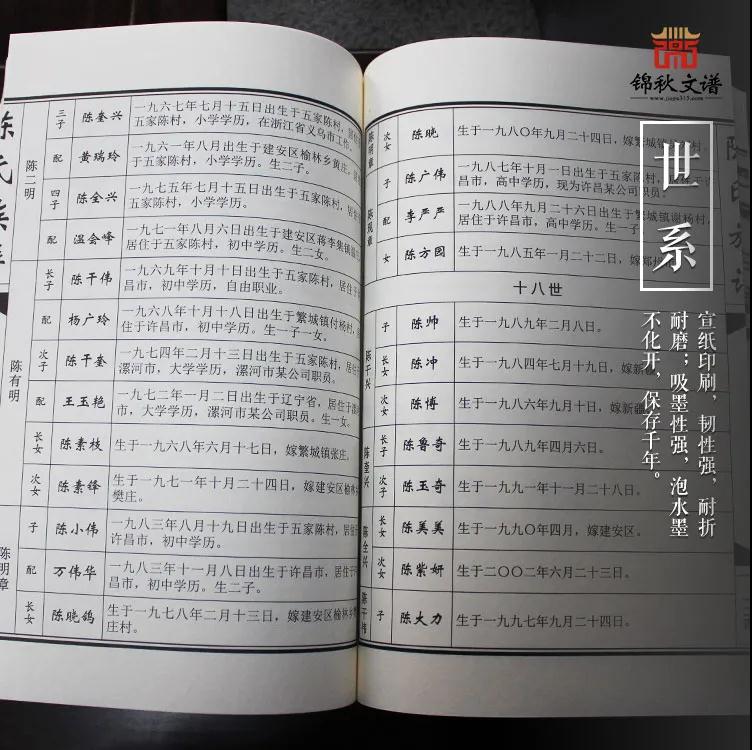 锦秋文谱
www.jiapu315.com
世系
宣纸印刷，韧性强，耐折
耐磨；吸墨性强，泡水墨
不化开，保存千年。
陈二明
三子 陈奎兴 一九六七年七月十五日出生于五家陈村，居住于
五家陈村，小学学历，在浙江省义乌市工作。
配 黄瑞玲 一九六一年八月出生于建安区榆林乡黄庄，居
于五家陈村，小学学历。生二子。
四子 陈全兴 一九七五年七月十五日出生于五家陈村，居住
陈村，小学学历。
配 温会峰 一九七一年八月六日出生于建安区蒋李集镇
居住于五家陈村，初中学历。生二女。
陈有明
长子 陈干伟 一九六九年十月十日出生于五家陈村，居住于
昌市，初中学历，自由职业。
配 杨广玲 一九六八年十月十八日出生于繁城镇付杨村，
住于许昌市，初中学历。生一子一女。
次子 陈干奎 一九七四年二月十三日出生于五家陈村，居住
漯河市，大学学历，漯河市某公司职员。
配 王玉艳 一九七二年一月二日出生于辽宁省，居住于
市，大学学历，漯河市某公司职员。生一女。
长女 陈素枝 生于一九六八年六月十七日，嫁繁城镇张庄。
次女 陈素锋 生于一九七一年十月二十四日，嫁建安区榆林
樊庄。
陈明章
子 陈小伟 一九八三年八月十九日出生于五家陈村，居住
许昌市，初中学历。
配 万伟华 一九八三年十一月八日出生于许昌市，居住于
昌市，初中学历。生二子。
长女 陈晓鸽 生于一九七八年二月十三日，嫁建安区榆林乡
庄村。
陈明章
次女 陈晓 生于一九八〇年九月二十四日，嫁繁城镇 村。
陈凤章
子 陈广伟 一九八七年十月一日出生于五家陈村，居住于许
昌市，高中学历，现为许昌某公司职员。
配 李严严 一九八八年九月二十六日出生于繁城镇谢杨村，
居住于许昌市，高中学历。生一子。
女 陈方圆 生于一九八五年一月二十二日，嫁郑州
十八世
陈干兴
子 陈帅 生于一九八九年二月八日。
长女 陈冲 生于一九八四年七月十九日，嫁新疆
次女 陈博 生于一九八六年九月十日，嫁新疆
陈奎兴
长女 陈鲁奇 生于一九八九年四月六日。
子 陈玉奇 生于一九九一年十一月二十八日。
陈全兴
长女 陈美美 生于一九九〇年四月，嫁建安区。
次女 陈紫妍 生于二〇〇二年六月二十三日。
陈干伟
子 陈大力 生于一九九七年九月二十四日。